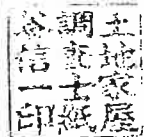 土地家屋
調査士紙
谷信一印